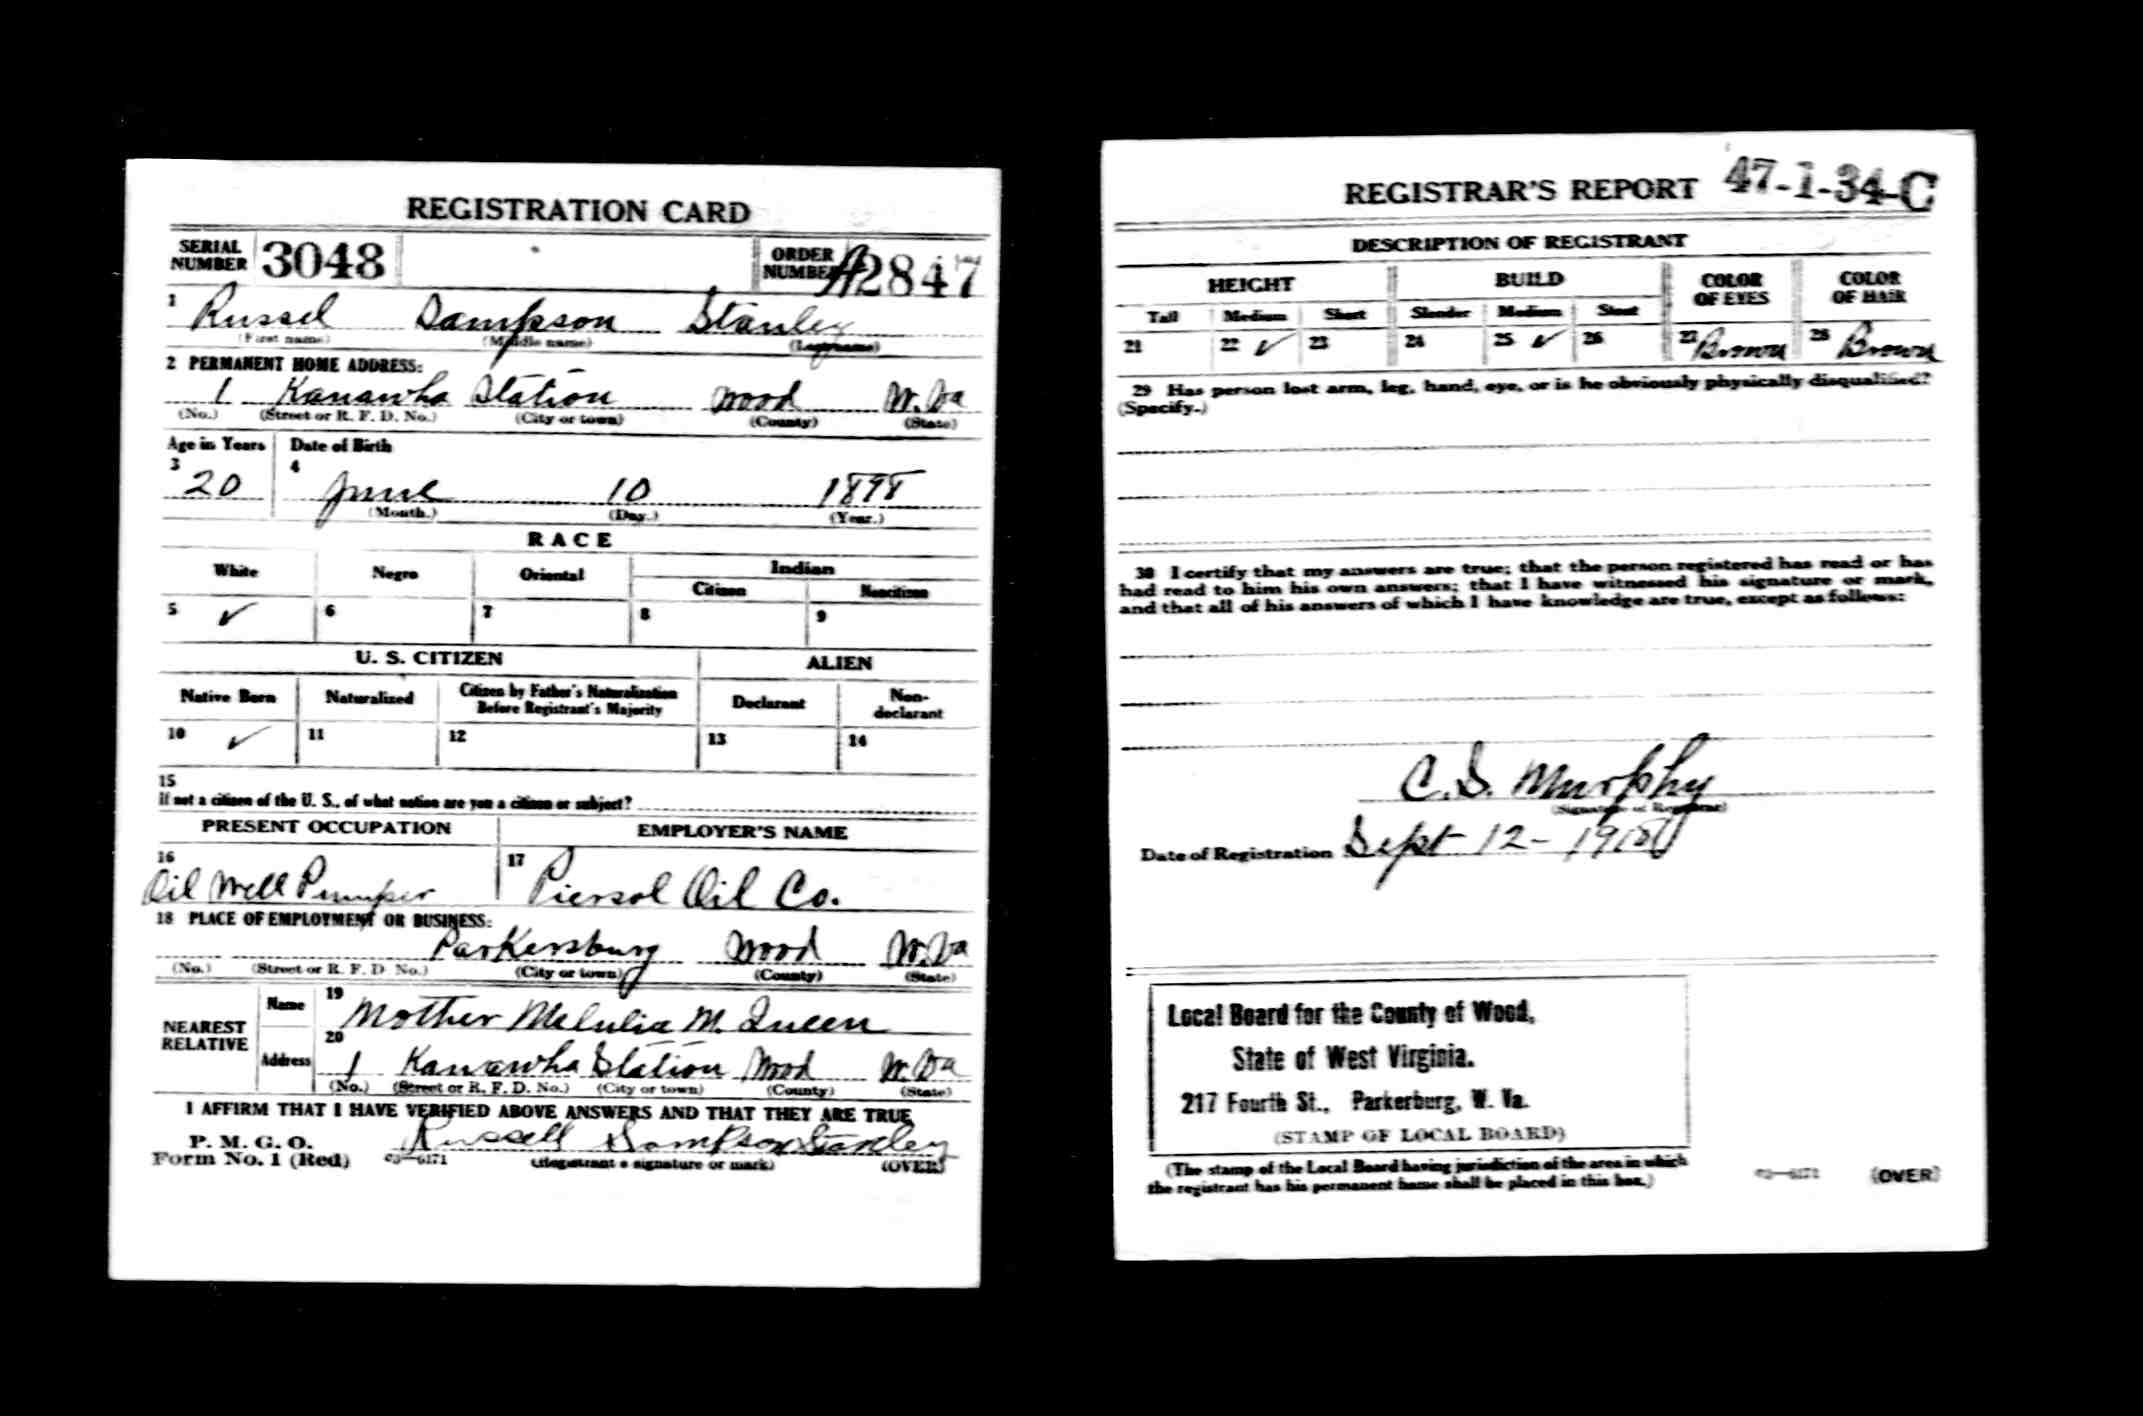 REGISTRATION CARD
SERIAL NUMBER 3048 ORDER NUMBER A2847
1 Russel Sampson Stanley
(First name) (Middle name) (Last name)
2 PERMANENT HOME ADDRESS:
1 Kanawha Station Wood W.Va
(No.) (Street or R. F. D. No.) (City or town) (County) (State)
Age in Years Date of Birth
3 20 4 June 10 1898
(Month.) (Day.) (Year.)
RACE
White Negro Oriental Indian
Citizen Noncitizen
5 ✓ 6 7 8 9
U. S. CITIZEN ALIEN
Native Born Naturalized Citizen by Father's Naturalization Before Registrant's Majority Declarant Non-declarant
10 ✓ 11 12 13 14
15
If not a citizen of the U. S., of what nation are you a citizen or subject?
PRESENT OCCUPATION EMPLOYER'S NAME
16 Oil Well Pumper 17 Piersol Oil Co.
18 PLACE OF EMPLOYMENT OR BUSINESS:
Parkersburg Wood W.Va
(No.) (Street or R. F. D. No.) (City or town) (County) (State)
NEAREST RELATIVE
Name 19 Mother M. Queen
Address 20 1 Kanawha Station Wood W.Va
(No.) (Street or R. F. D. No.) (City or town) (County) (State)
I AFFIRM THAT I HAVE VERIFIED ABOVE ANSWERS AND THAT THEY ARE TRUE
P. M. G. O.
Form No. 1 (Red) 03—6171 Russell Sampson Stanley
(Registrant's signature or mark) (OVER)
REGISTRAR'S REPORT 47-1-34-C
DESCRIPTION OF REGISTRANT
HEIGHT BUILD COLOR OF EYES COLOR OF HAIR
Tall Medium Short Slender Medium Stout
21 22 ✓ 23 24 25 ✓ 26 27 Brown 28 Brown
29 Has person lost arm, leg, hand, eye, or is he obviously physically disqualified?
(Specify.)
30 I certify that my answers are true; that the person registered has read or has
had read to him his own answers; that I have witnessed his signature or mark,
and that all of his answers of which I have knowledge are true, except as follows:
C. S. Murphy
(Signature of Registrar)
Date of Registration Sept 12-1918
Local Board for the County of Wood,
State of West Virginia.
217 Fourth St., Parkerberg, W. Va.
(STAMP OF LOCAL BOARD)
(The stamp of the Local Board having jurisdiction of the area in which
the registrant has his permanent home shall be placed in this box.)
03—6171 (OVER)